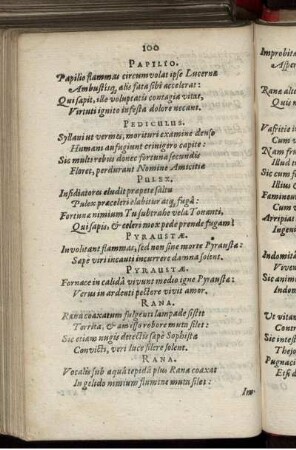 100
PAPILIO.
Papilio flammas circumvolat ipse Lucernæ
Ambustisq, alis fata sibi accelerat:
Qui sapit, ille voluptatis contagia vitat,
Virtuti ignito infesta dolore necant.
PEDICULUS.
Syllavi ut vermes, morituri examine denso
Humani aufugiunt crinigero capite:
Sic multi rebus donec fortuna secundis
Flores, perdurant Nomine Amicitiæ
PULEX.
Insidiatores eludit præpete saltu
Pulex præceleri elabitur atq, fugâ:
Fortunæ nimium Tu subtrahe vela Tonanti,
Qui sapis, & celeri mox pede prende fugam!
PYRAUSTÆ.
Involitant flammas, sed non sine morte Pyraustæ:
Sæpe viri incauti incurrere damna solent.
PYRAUSTÆ.
Fornace in calidâ vivunt medio igne Pyraustæ:
Verus in ardenti pectore vivit amor.
RANA.
Rana coaxatum fulgenti lampade sistit
Territa, & amisso robore muta silet:
Sic etiam nugis detectis sæpè Sophista
Convicti, veri luce silere solent.
RANA.
Vocalis sub aquâ tepidâ plus Rana coaxat
In gelido nimium flumine muta silet:
Im-
Improbita
Asper
Rana alta
Quæ
Vafritie i
Cum
Nam fro
Illud t
Sic cum fo
Illius
Famineu
Cum v
Arripiat
Ingeni
Indomitâ
Vevent
Sic animi
Indom
Ut vitam
Contra
Sic intest
Thejo
Pugnaci
Etsi d